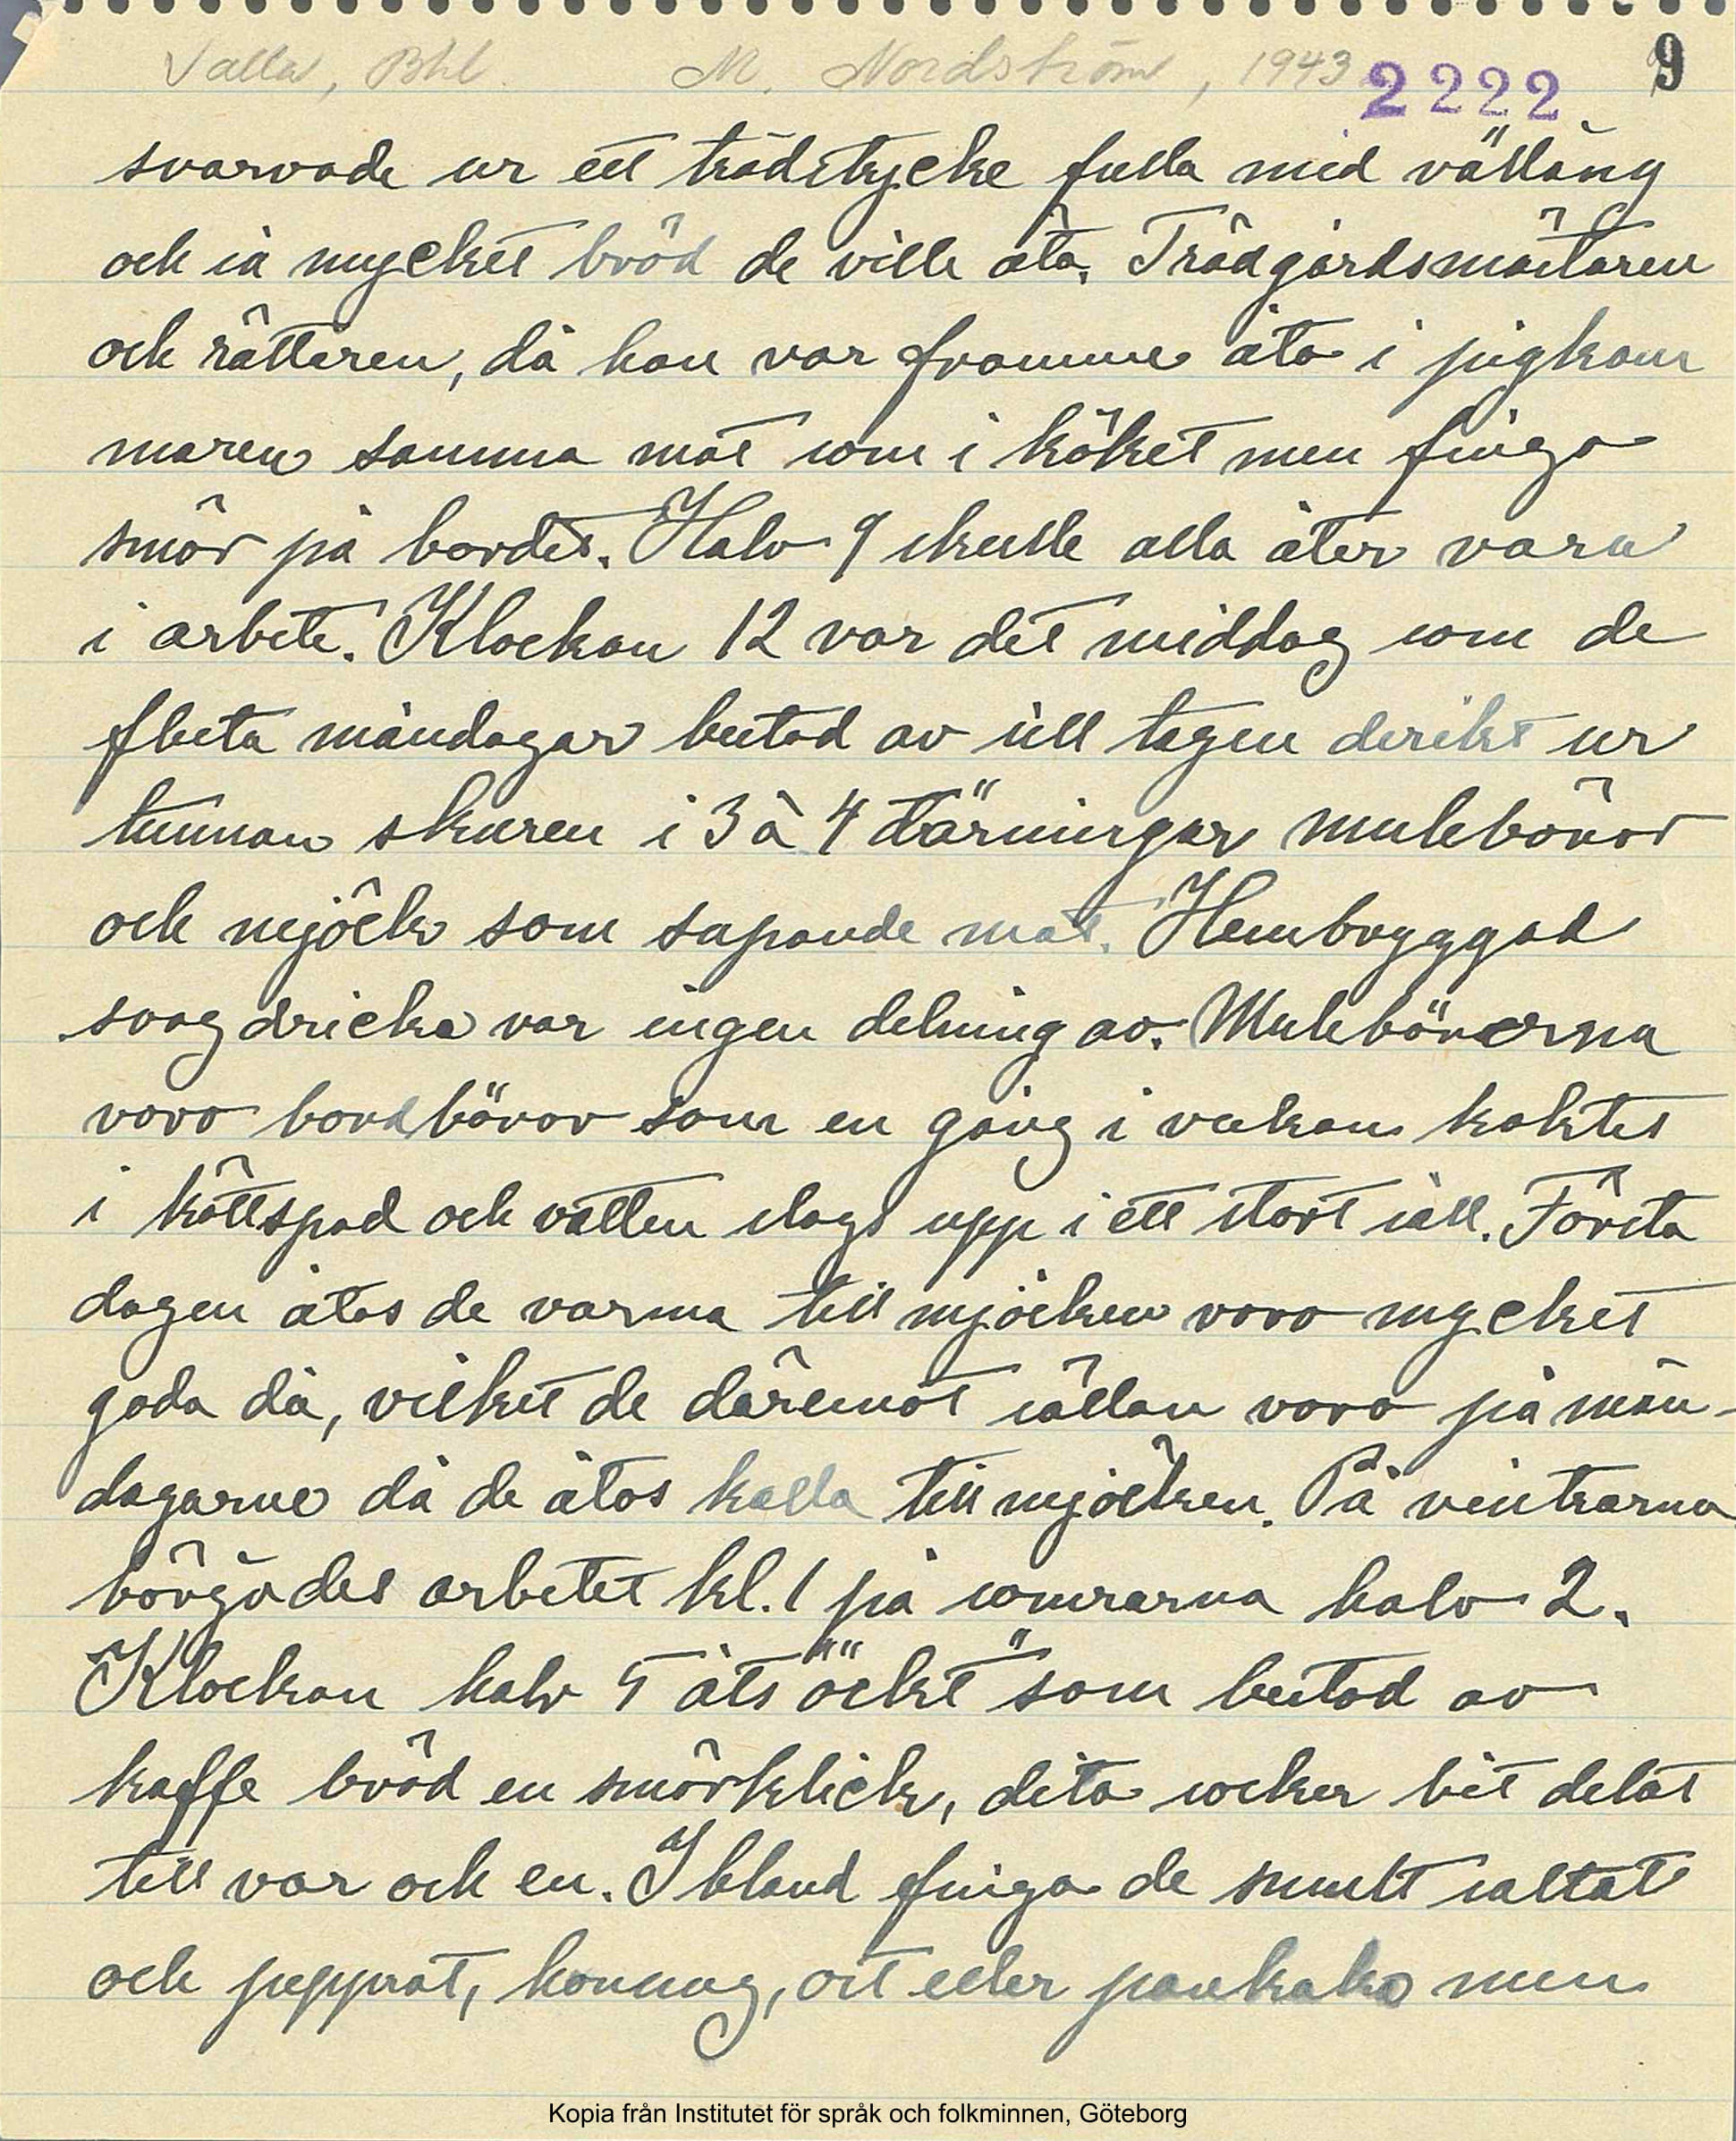 Valla, Bhl. M. Nordström, 1943 2222 9
svarvade ur ett trädstycke fulla med välling
och så mycket bröd de ville äta. Trädgårdsmästaren
och rättaren, då han var framme åto i pigkam
maren samma mat som i köket men fingo
smör på bordet. Halv 9 skulle alla åter vara
i arbete. Klockan 12 var det middag som de
flesta måndagar bestod av sill tagen derikt ur
tunnan skuren i 3 à 4 tärningar mulebönor
och mjölk som supande mat. Hembryggad
svagdricka var ingen delning av. Mulebönerna
voro bondbönor som en gång i veckan koktes
i köttspad och vatten slogs upp i ett stort såll. Första
dagen åtos de varma till mjölken voro mycket
goda då, vilket de däremot sällan voro på mån-
dagarne då de åtos kalla till mjölken. På vintrarna
börjades arbetet kl. 1 på somrarna halv 2.
Klockan halv 5 åts "öckt" som bestod av
kaffe bröd en smörklick, dito socker bit delat
till var och en. Ibland fingo de smult saltat
och pepprat, honung, ost eller pankaka men
Kopia från Institutet för språk och folkminnen, Göteborg